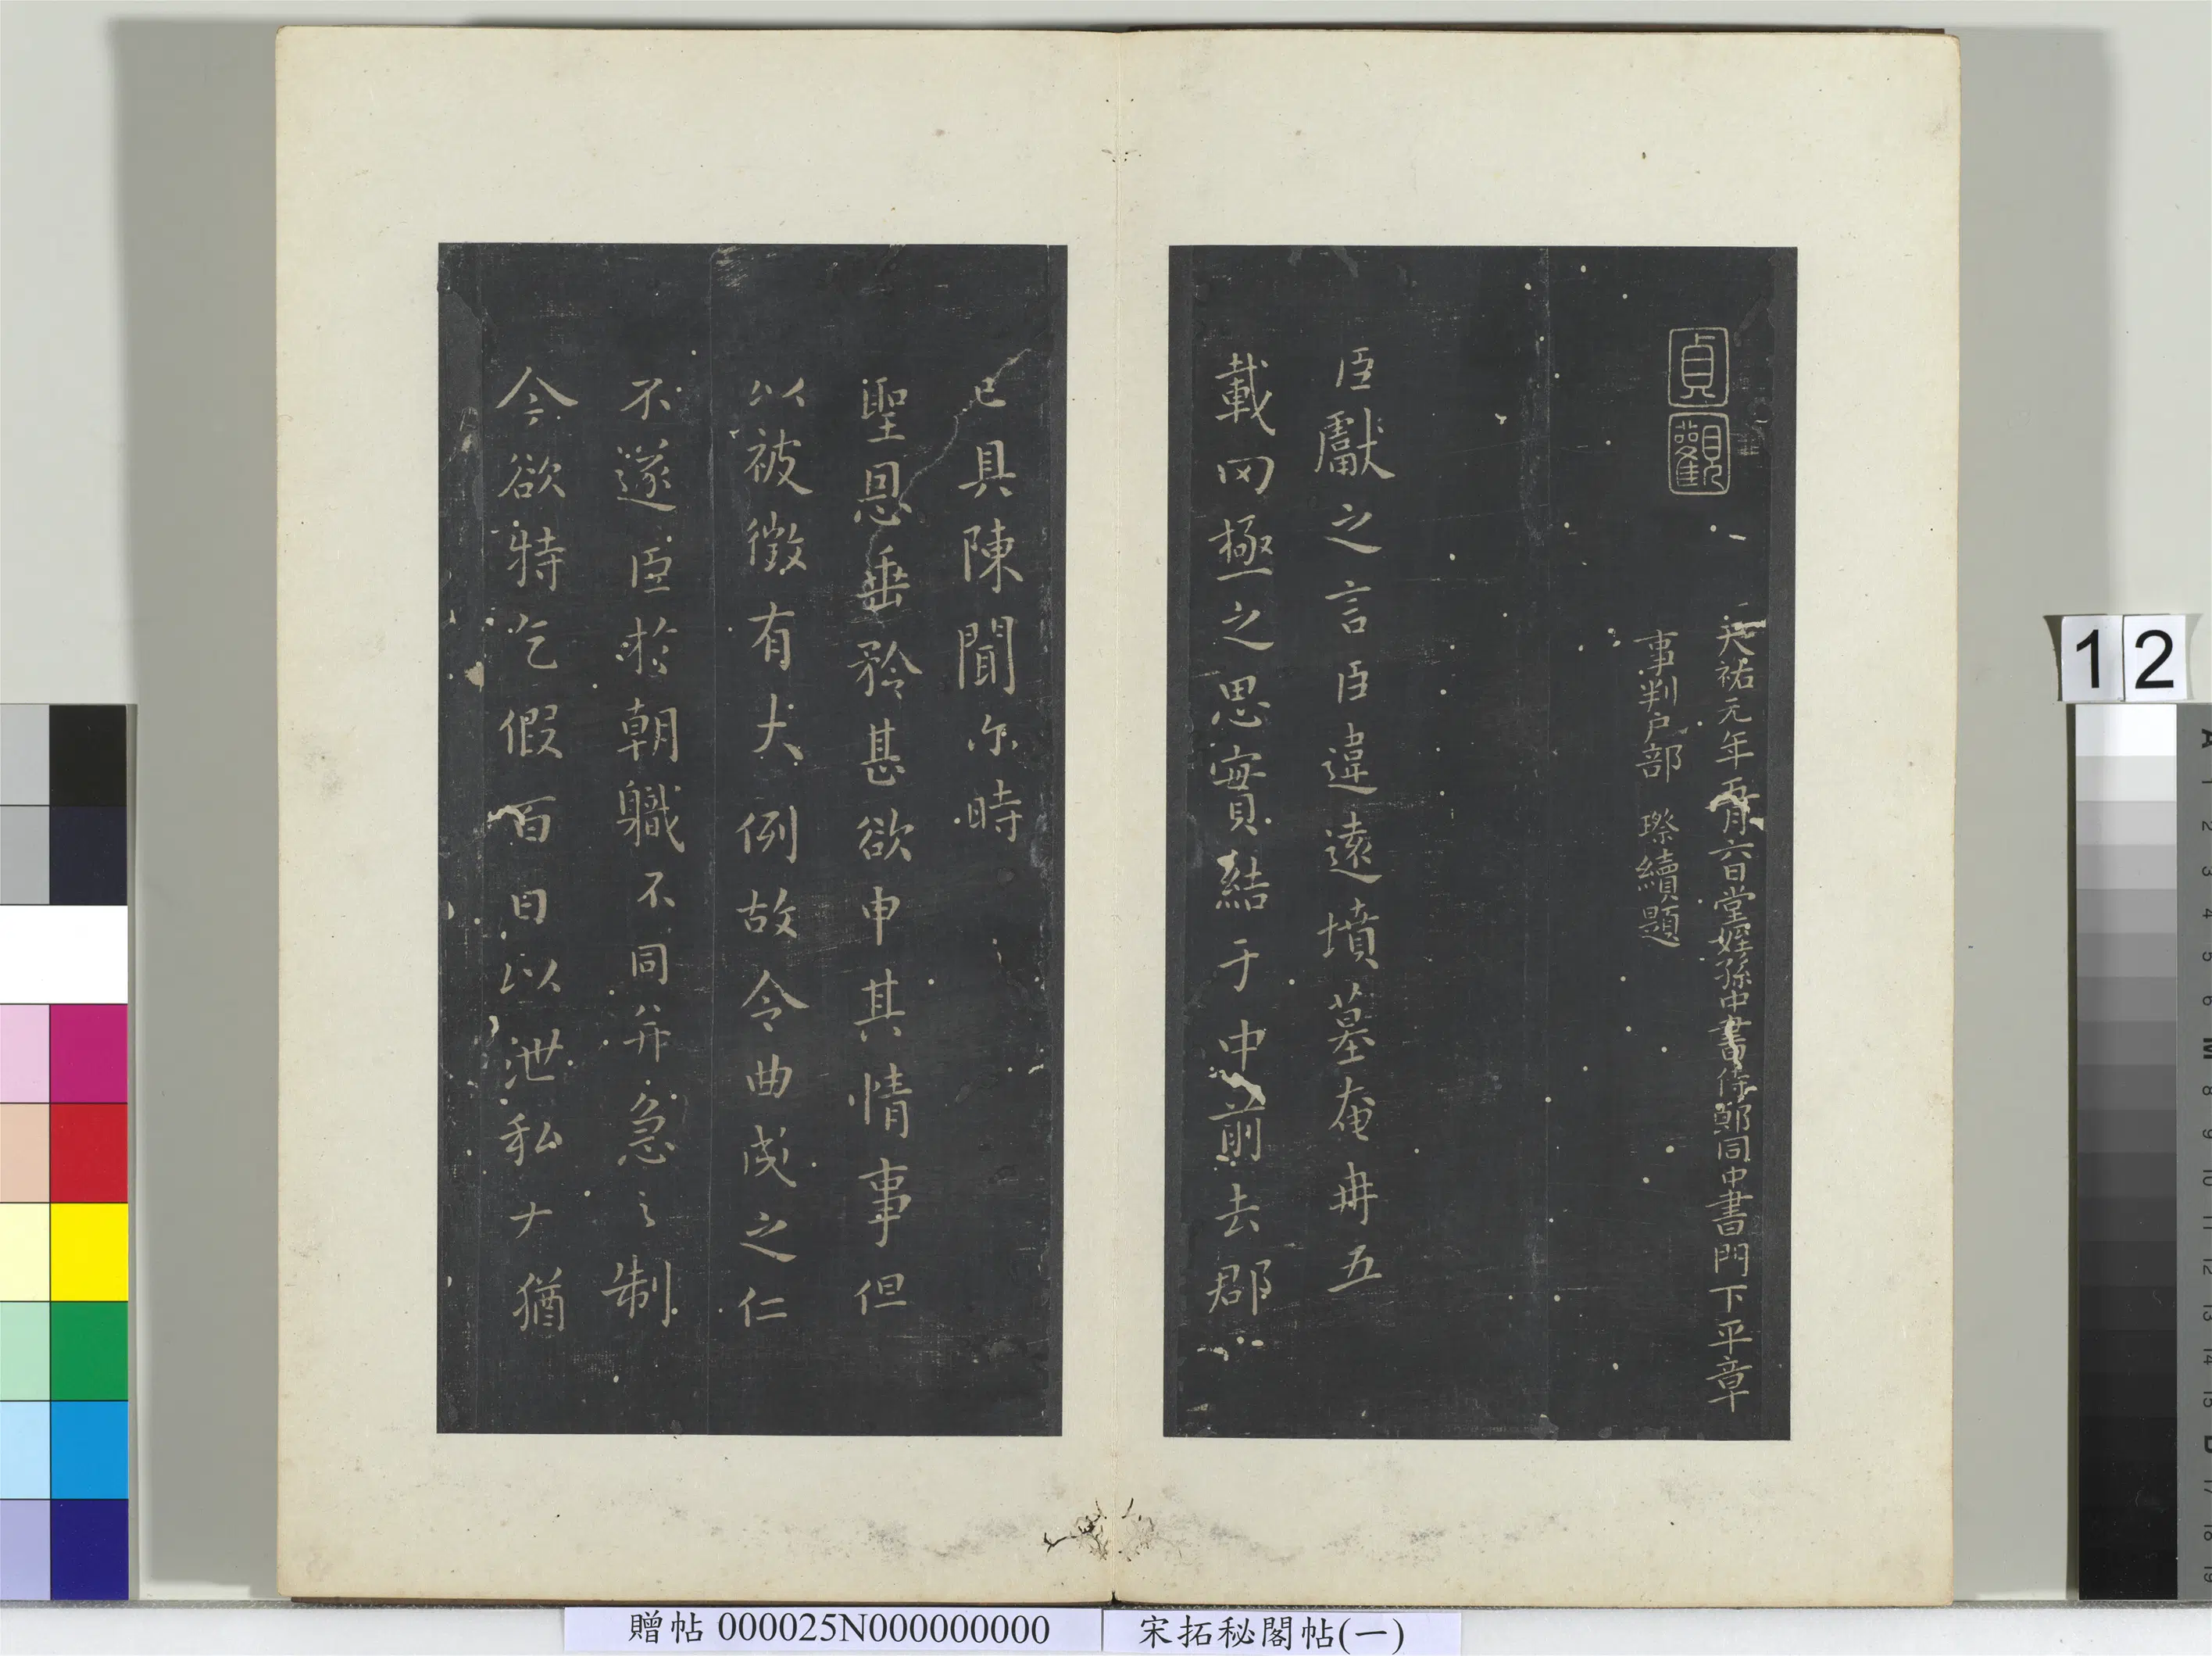 貞觀
天祐元年五月六日堂姪孫中書侍郎同中書門下平章
事判戶部 璨續題
臣獻之言臣違遠墳墓奄冉五
載罔極之思實結于中前去郡
已具陳聞尒時
聖恩垂矜甚欲申其情事但
以被徵有大例故令曲成之仁
不遂臣於朝職不同并急之制
今欲特乞假百日以泄私大猶
贈帖 000025N000000000
宋拓秘閣帖(一)
12